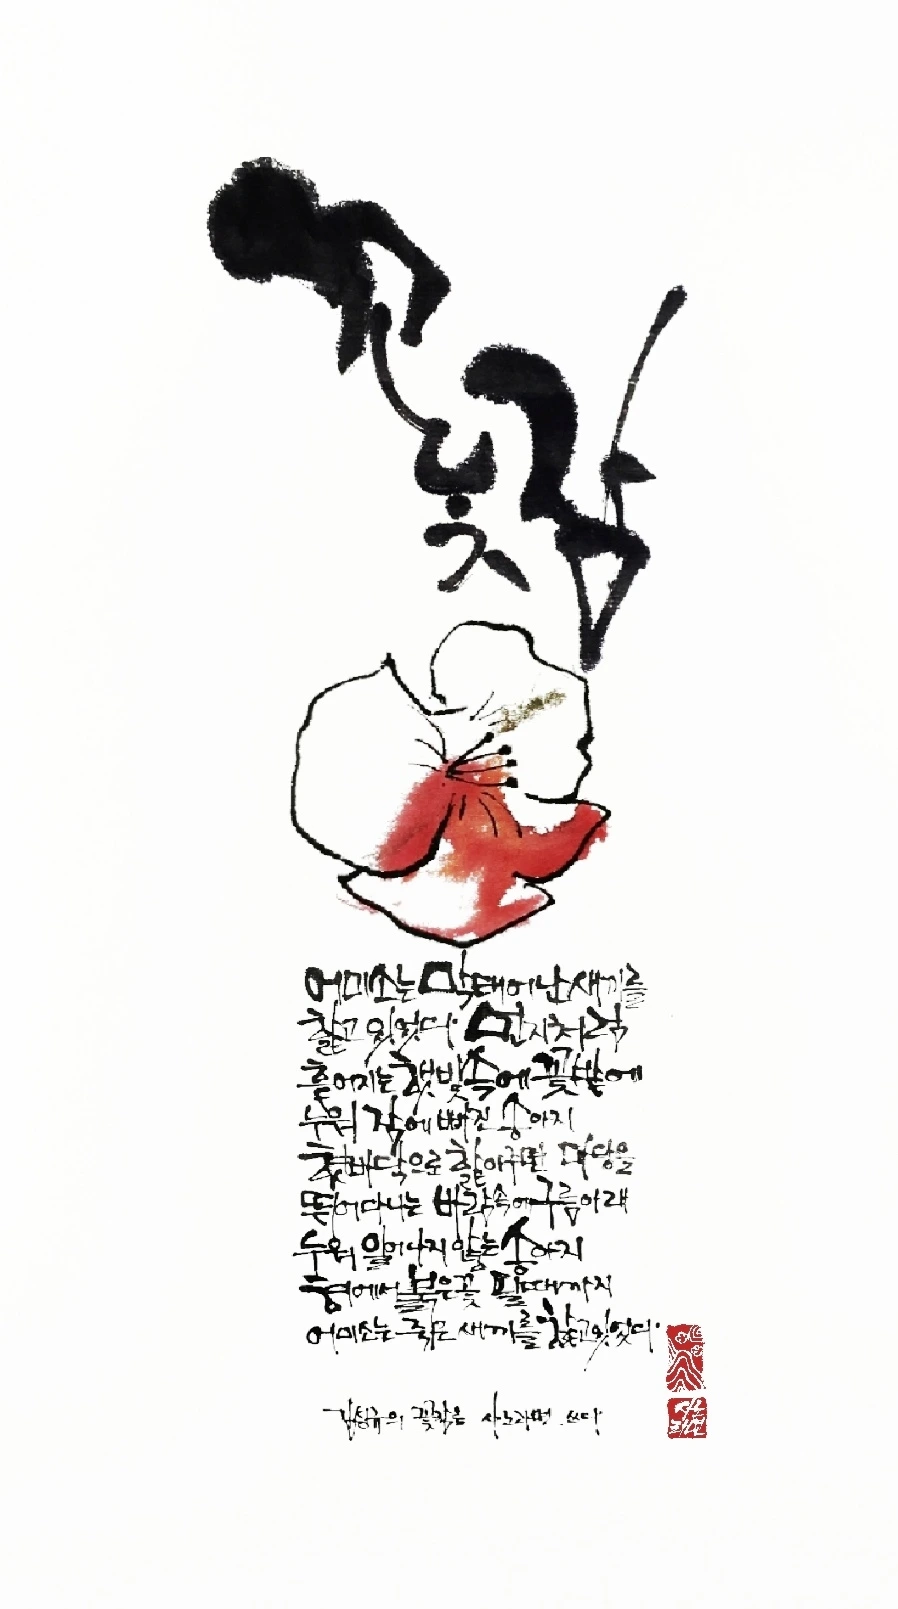 꽃잠
어미소는 막 태어난 새끼를
핥고 있었다. 먼지처럼
흩어지는 햇빛 속에 꽃밭에
누워 잠에 빠진 송아지
혓바닥으로 핥아주면 마당을
뛰어다니는 바람 속에 구름 아래
누워 일어나지 않는 송아지
혀에서 붉은 꽃 필 때까지
어미소는 죽은 새끼를 핥고 있었다.
김성규의 꽃잠을 사노라면 쓰다